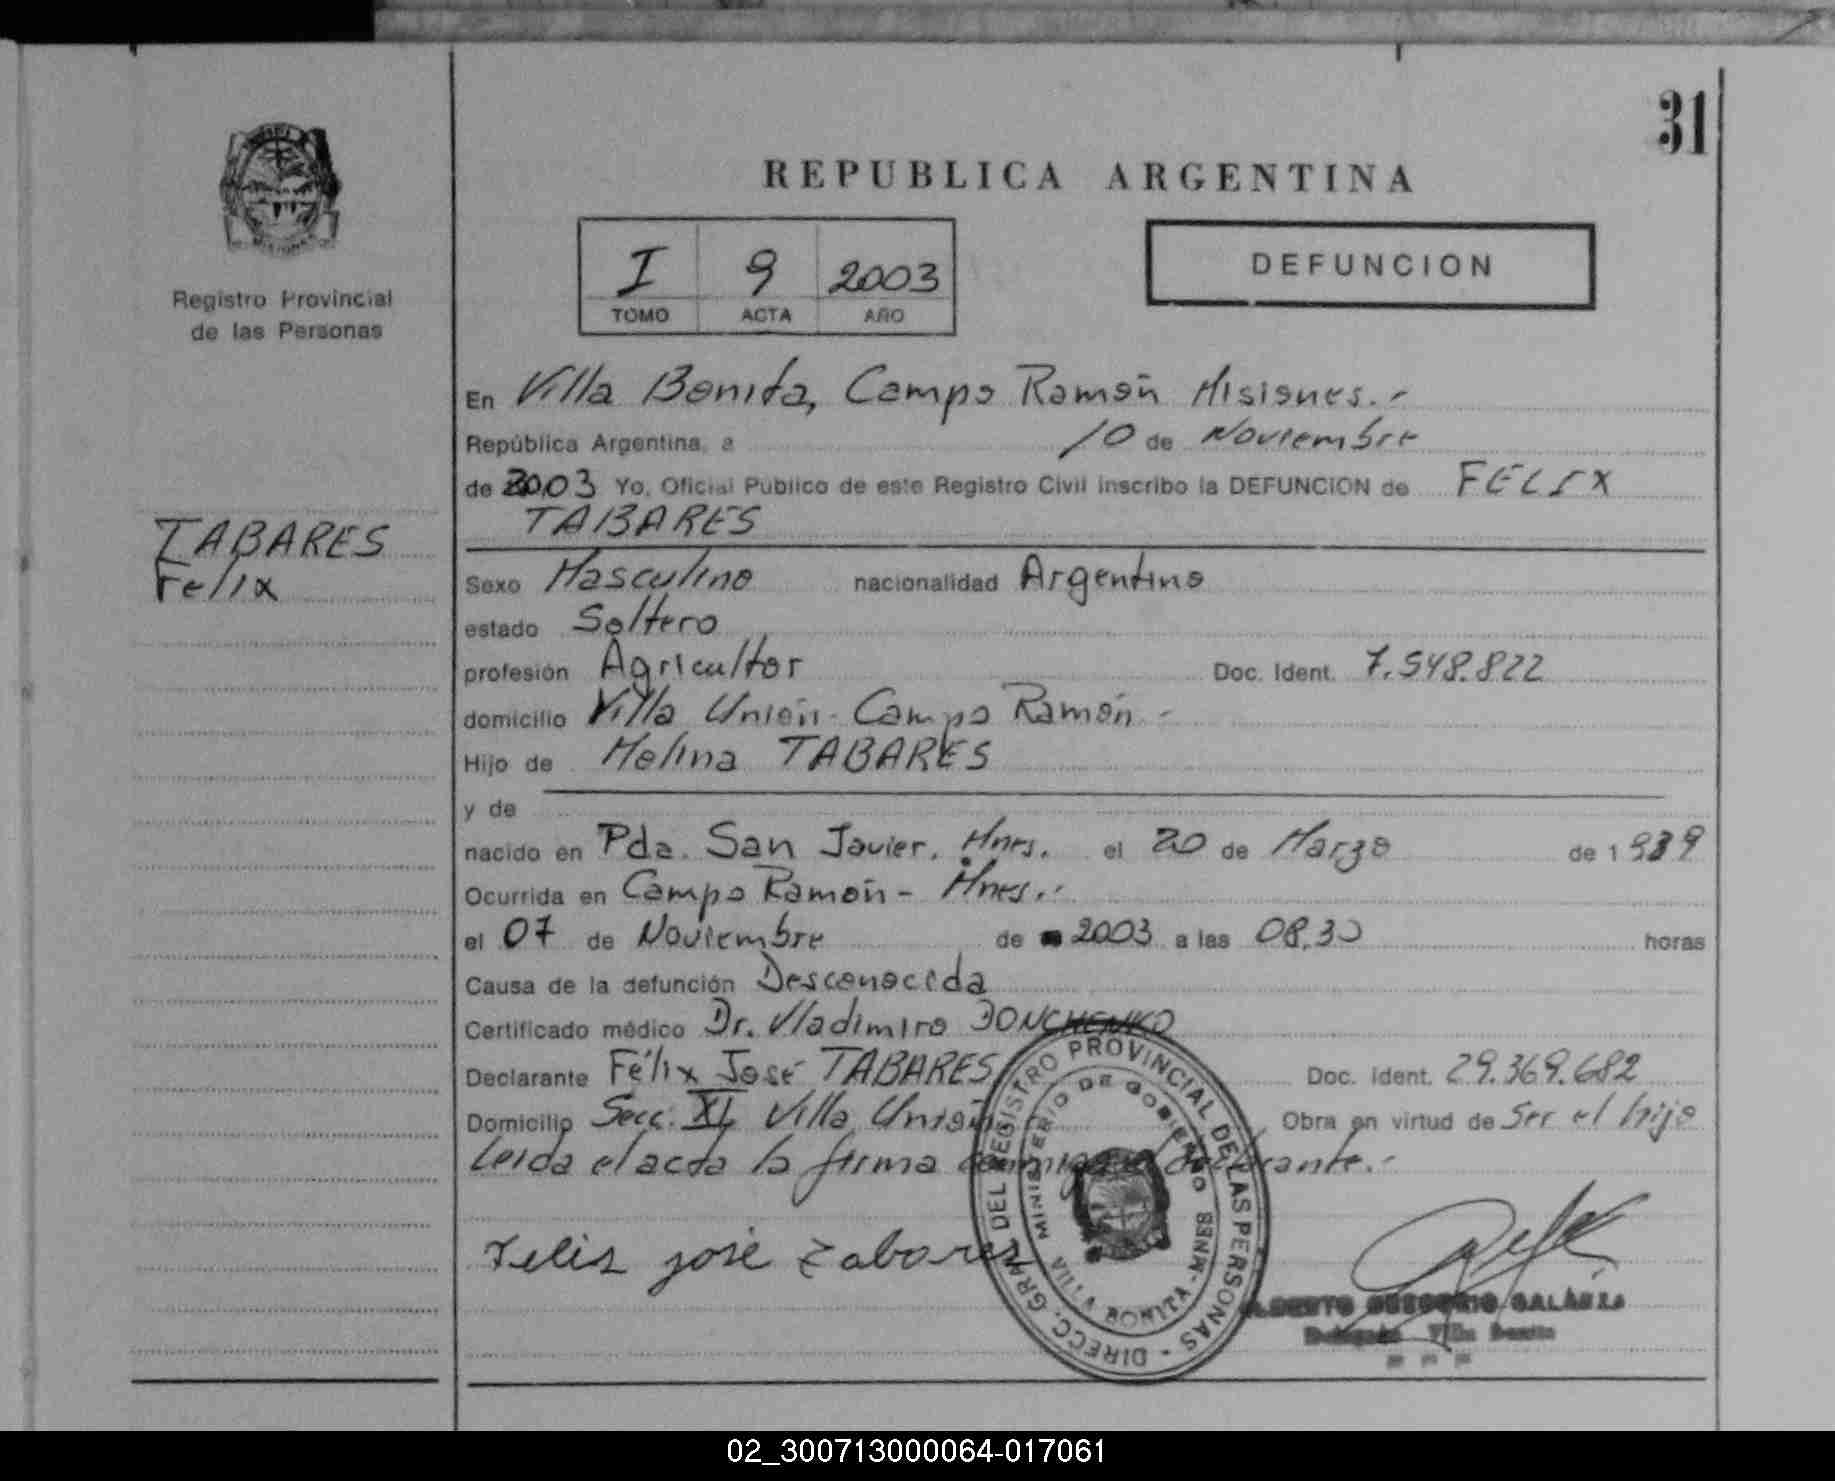 31
REPUBLICA ARGENTINA
I 9 2003
TOMO ACTA AÑO
DEFUNCION
Registro Provincial
de las Personas
TABARES
Felix
En Villa Bonita, Campo Ramón Misiones.-
República Argentina, a 10 de Noviembre
de 2003 Yo, Oficial Público de este Registro Civil inscribo la DEFUNCION de FELIX
TABARES
Sexo Masculino nacionalidad Argentino
estado Soltero
profesión Agricultor Doc. Ident. 7.548.822
domicilio Villa Unión - Campo Ramón -
Hijo de Melina TABARES
y de
nacido en Pda. San Javier. Mnes. el 20 de Marzo de 1939
Ocurrida en Campo Ramón - Mnes.-
el 07 de Noviembre de 2003 a las 08,30 horas
Causa de la defunción Desconocida
Certificado médico Dr. Vladimiro DONCHENKO
Declarante Félix José TABARES Doc. Ident. 29.369.682
Domicilio Secc. XI Villa Unión Obra en virtud de Ser el hijo
Leida el acta la firma conmigo el declarante.-
Felix josé tabares
DIRECC. GRAL DEL REGISTRO PROVINCIAL DE LAS PERSONAS -
MINISTERIO DE GOBIERNO
VILLA BONITA - MNES
ALBERTO GALARZA
Delegado Villa Bonita
02_300713000064-017061